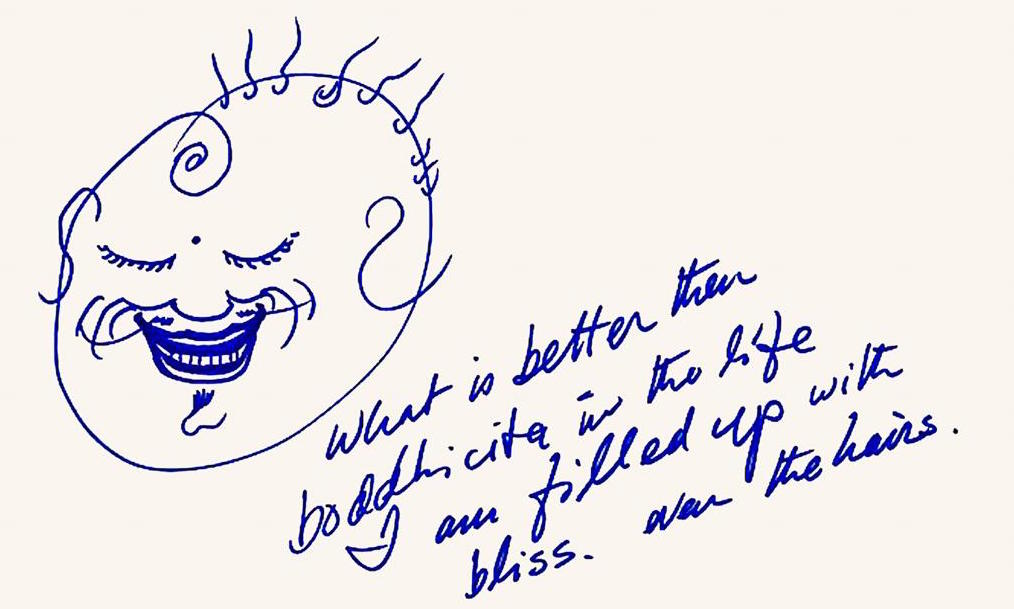 What is better then
boddhicita in the life
I am filled up with
bliss. even the hairs.